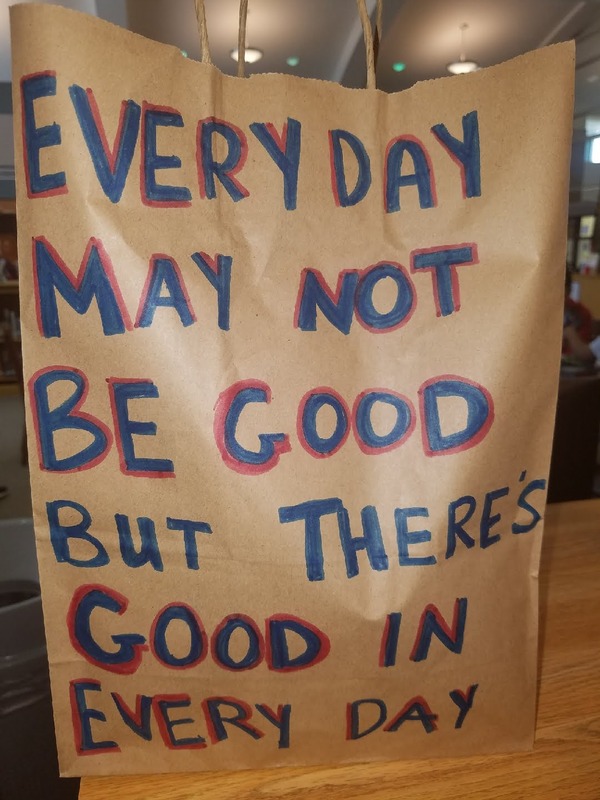 EVERY DAY
MAY NOT
BE GOOD
BUT THERE'S
GOOD IN
EVERY DAY